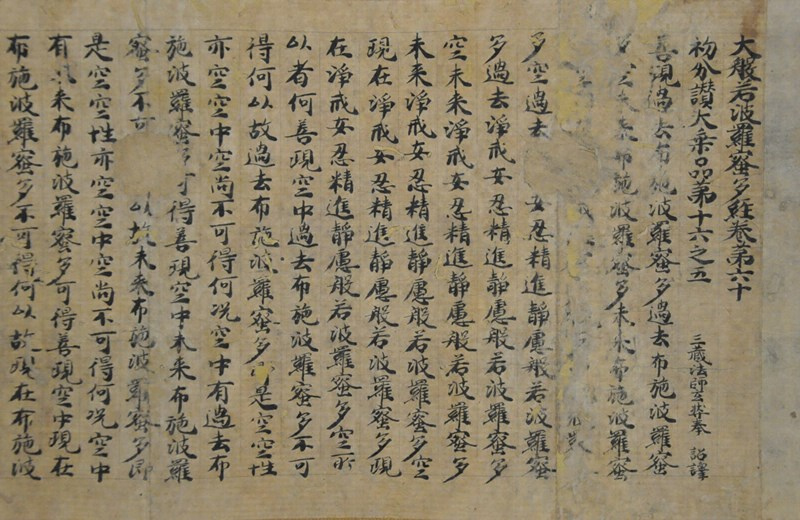 大般若波羅蜜多経卷第六十
初分讃大乗品第十六之五
三藏法師玄奘奉 詔譯
善現過去布施波羅蜜多過去布施波羅蜜
多空未来布施波羅蜜多未来布施波羅蜜
多空過去 安忍精進靜慮般若波羅蜜
多過去淨戒安忍精進靜慮般若波羅蜜多
空未来淨戒安忍精進靜慮般若波羅蜜多
未来淨戒安忍精進靜慮般若波羅蜜多空
現在淨戒安忍精進靜慮般若波羅蜜多現
在淨戒安忍精進靜慮般若波羅蜜多空所
以者何善現空中過去布施波羅蜜多不可
得何以故過去布施波羅蜜多即是空空性
亦空空中空尚不可得何况空中有過去布
施波羅蜜多可得善現空中未来布施波羅
蜜多不可 以故未来布施波羅蜜多即
是空空性亦空空中空尚不可得何况空中
有未来布施波羅蜜多可得善現空中現在
布施波羅蜜多不可得何以故現在布施波